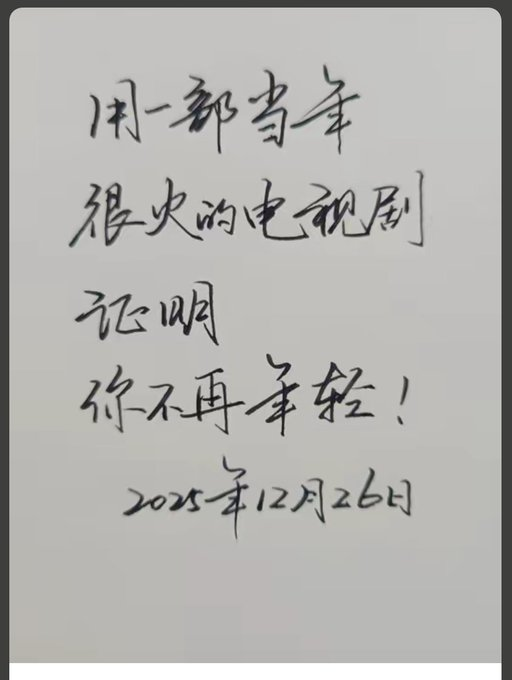 用一部当年
很火的电视剧
证明
你不再年轻！
2025年12月26日